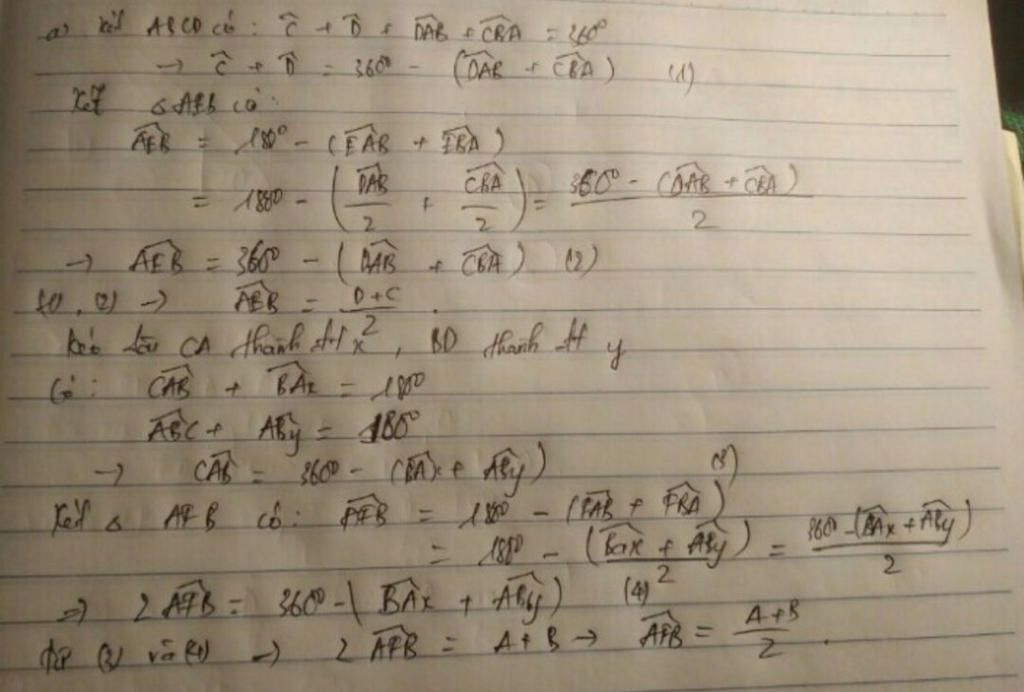 a) Xét ABCD có: Ĉ + D̂ + DAB̂ + CBÂ = 360°
→ Ĉ + D̂ = 360° - (DAB̂ + CBÂ) (1)
Xét △AEB có:
AEB̂ = 180° - (EAB̂ + EBÂ)
= 180° - (DAB̂/2 + CBÂ/2) = (360° - (DAB̂ + CBÂ))/2
→ AEB̂ = 360° - (DAB̂ + CBÂ) (2)
(1), (2) → AEB̂ = (D+C)/2.
Kéo dài CA thành tt x, BD thành tt y
Có: CAB̂ + BAx̂ = 180°
ABĈ + ABŷ = 180°
→ CAB̂ = 360° - (BAx̂ + ABŷ) (3)
Xét △ AFB có: AFB̂ = 180° - (FAB̂ + FBÂ)
= 180° - (Bax̂ + ABŷ)/2 = (360° - (BAx̂ + ABŷ))/2
=> 2 AFB̂ = 360° - (BAx̂ + ABŷ) (4)
Từ (3) và (4) → 2 AFB̂ = A + B → AFB̂ = (A+B)/2.